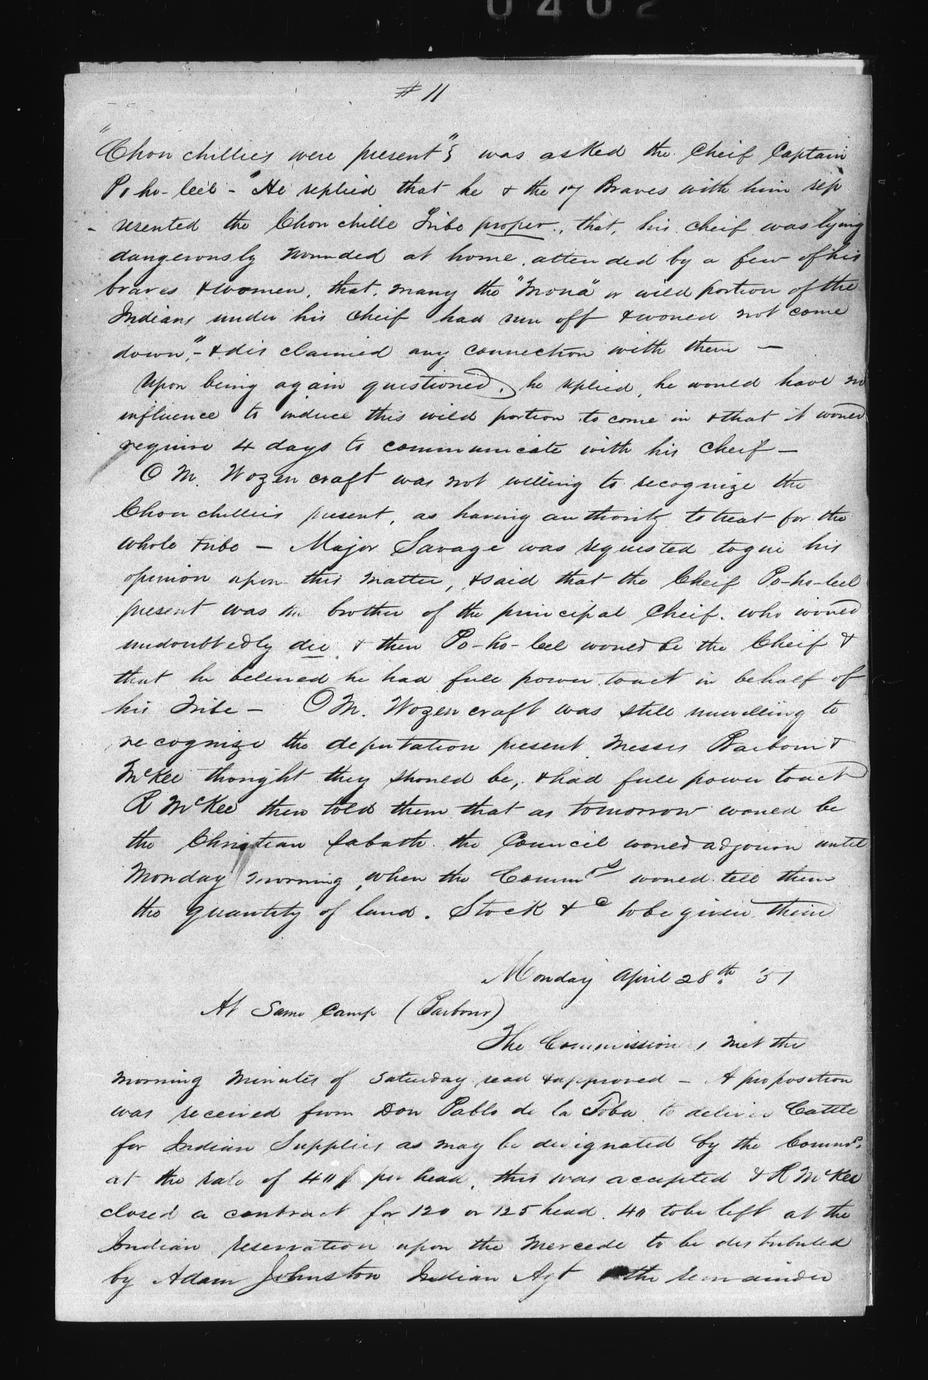 0402
# 11
"Chouchillies were present"? was asked the Cheif Captain
Po-ho-leel - "He replied that he & the 17 Braves with him rep
- resented the Chouchille Tribe proper, that, his cheif was lying
dangerously wounded at home, attended by a few of his
braves & women, that, many the "Mona" or wild portion of the
Indians under his cheif had run off & woued not come
down", - & disclaimed any connection with them —
Upon being again questioned, he replied, he would have no
influence to induce this wild portion to come in & that it woued
require 4 days to communicate with his cheif —
O M. Wozencraft was not willing to recognize the
Chouchillies present, as having authority to treat for the
whole tribe — Major Savage was requested to give his
opinion upon this matter, & said that the Cheif Po-ho-leel
present was the brother of the principal Cheif. who woued
undoubtedly die & then Po-ho-leel woued be the Cheif &
that he believed he had full power to act in behalf of
his Tribe — O M. Wozencraft was still unwilling to
recognize the deputation present Messrs Barbour &
McKee thought they shoued be, & had full power to act
R McKee then told them that as tomorrow woued be
the Christian Sabath the Council woued adjourn until
Monday morning, when the Comm^rs woued tell them
the quantity of land. Stock & c to be given them
Monday April 28th. '51
At Same Camp (Barbour)
The Commission, met the
morning minutes of Saturday read & approved — A proposition
was received from Don Pablo de la Toba to deliver Cattle
for Indian Supplies as may be designated by the Comm^rs.
at the rate of 40$ per head, this was accepted & R McKee
closed a contract for 120 or 125 head. 40 to be left at the
Indian reservation upon the Mercede to be distributed
by Adam Johnston Indian Agt the remainder